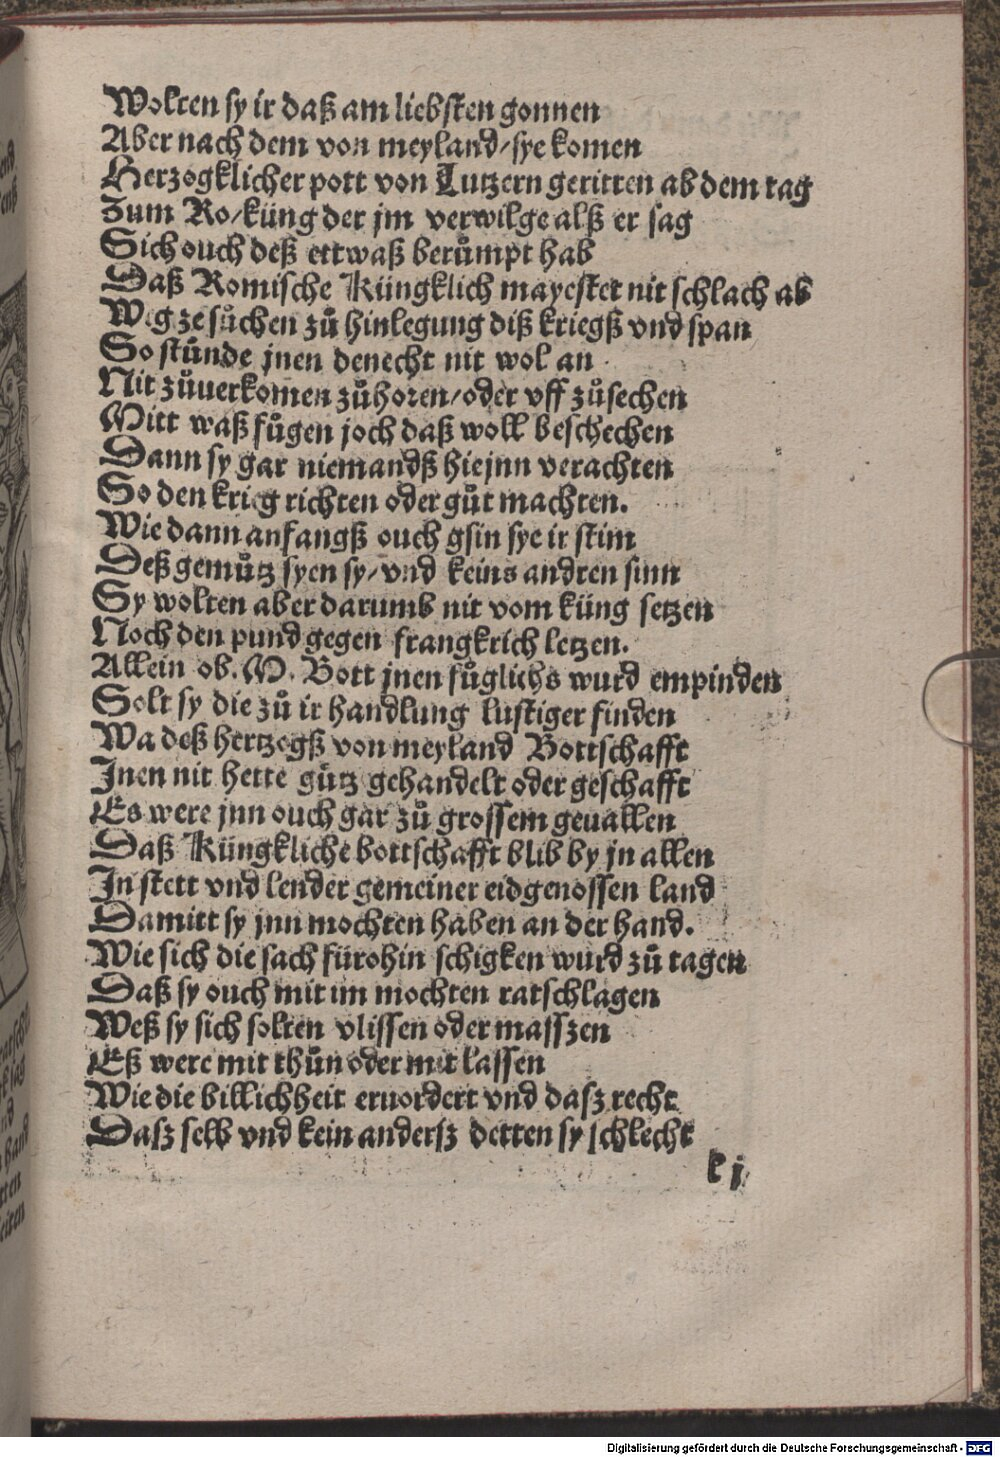 Wolten sy ir daß am liebsten gonnen
Aber nach dem von meyland/sye komen
Herzogklicher pott von Lutzern geritten ab dem tag
Zum Ro/küng der jm verwilge alß er sag
Sich ouch deß ettwaß berůmpt hab
Daß Romische Küngklich mayestet nit schlach ab
Weg ze sůchen zů hinlegung diß kriegß vnd span
So stůnde jnen denecht nit wol an
Nit zůuerkomen zůhoren/oder vff zůsechen
Mitt waß fůgen joch daß woll beschechen
Dann sy gar niemandß hiejnn verachten
So den krieg richten oder gůt machten.
Wie dann anfangß ouch gsin sye ir stim
Deß gemůtz syen sy/vnd keins andren sinn
Sy wolten aber darumb nit vom küng setzen
Noch den pund gegen frangkrich letzen.
Allein ob. M. Bott jnen fůglichs wurd empinden
Solt sy die zů ir handlung lustiger finden
Wa deß hertzogß von meyland Bottschafft
Jnen nit hette gůtz gehandelt oder geschafft
Es were jnn ouch gar zů grossem geuallen
Daß Küngkliche bottschafft blib by jn allen
In stett vnd lender gemeiner eidgenossen land
Damitt sy jnn mochten haben an der hand.
Wie sich die sach fürohin schigken wurd zů tagen
Daß sy ouch mit im mochten ratschlagen
Weß sy sich solten vlissen oder masszen
Eß were mit thůn oder mit lassen
Wie die billichheit eruordert vnd dasz recht
Dasz selb vnd kein andersz detten sy schlecht
k j
Digitalisierung gefördert durch die Deutsche Forschungsgemeinschaft - DFG